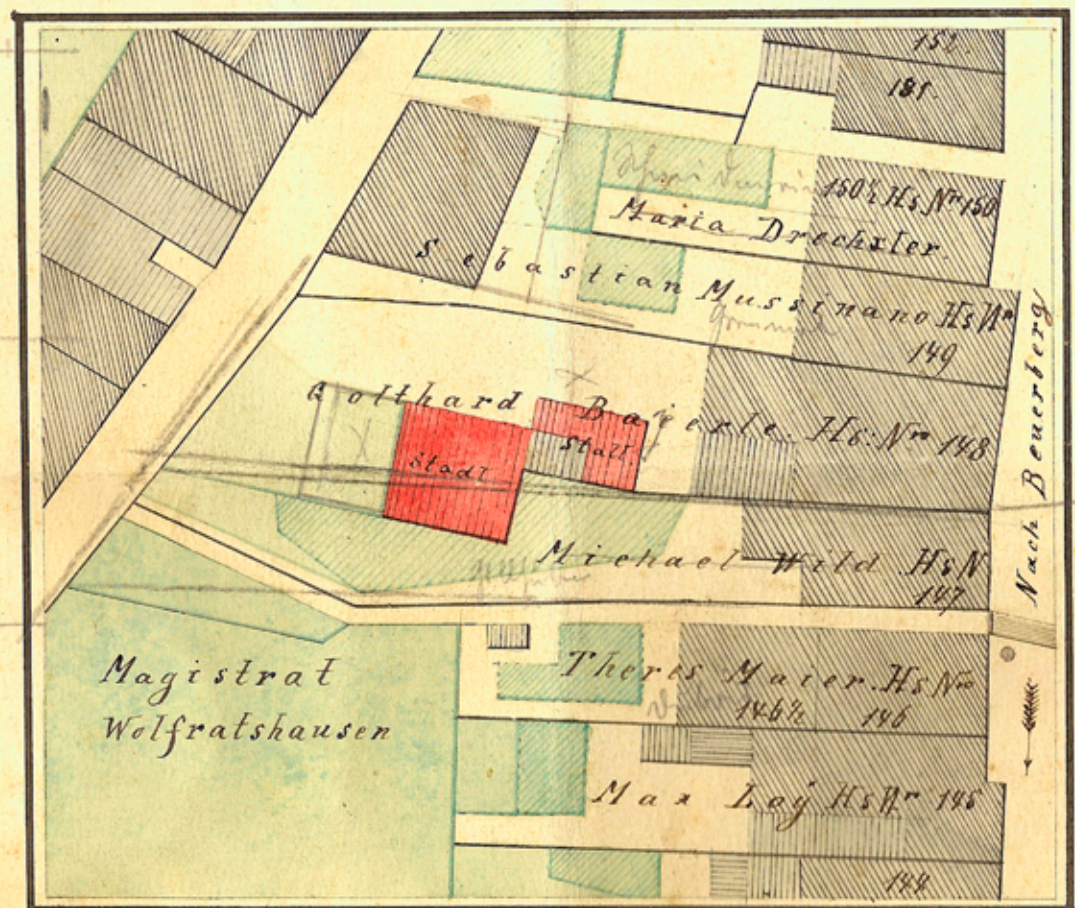 152.
181.
150½ Hs Nro 150
Maria Drechsler.
Sebastian Mussinano Hs Nr
149
Gotthard Bayerle. Hs: Nro 148
Stadl
Stall.
Michael Wild Hs N
147
Nach Beuerberg
Magistrat
Wolfratshausen
Theres Maier. Hs Nro
146½ 146
Max Loÿ Hs Nr 145
144